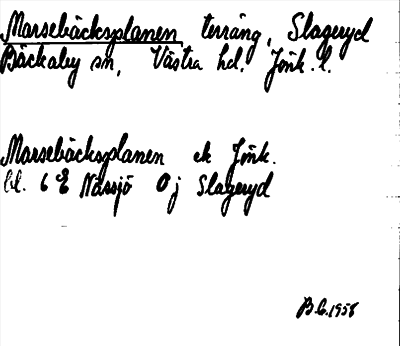 Marsebäcksplanen terräng, Slageryd
Bäckaby sn, Västra hd. Jönk. l.
Marsebäcksplanen ek Jönk.
bl. 6 E Nässjö 0 j Slageryd
B.G. 1958